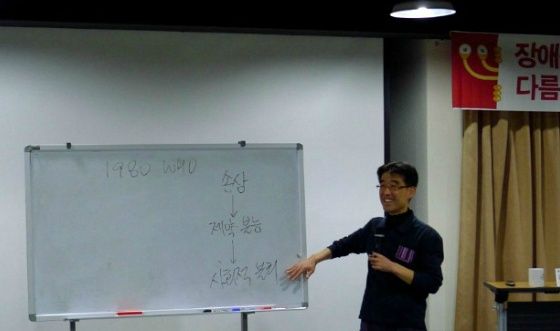 1980 WHO
손상
제약 불능
사회적 불리
장애
다름